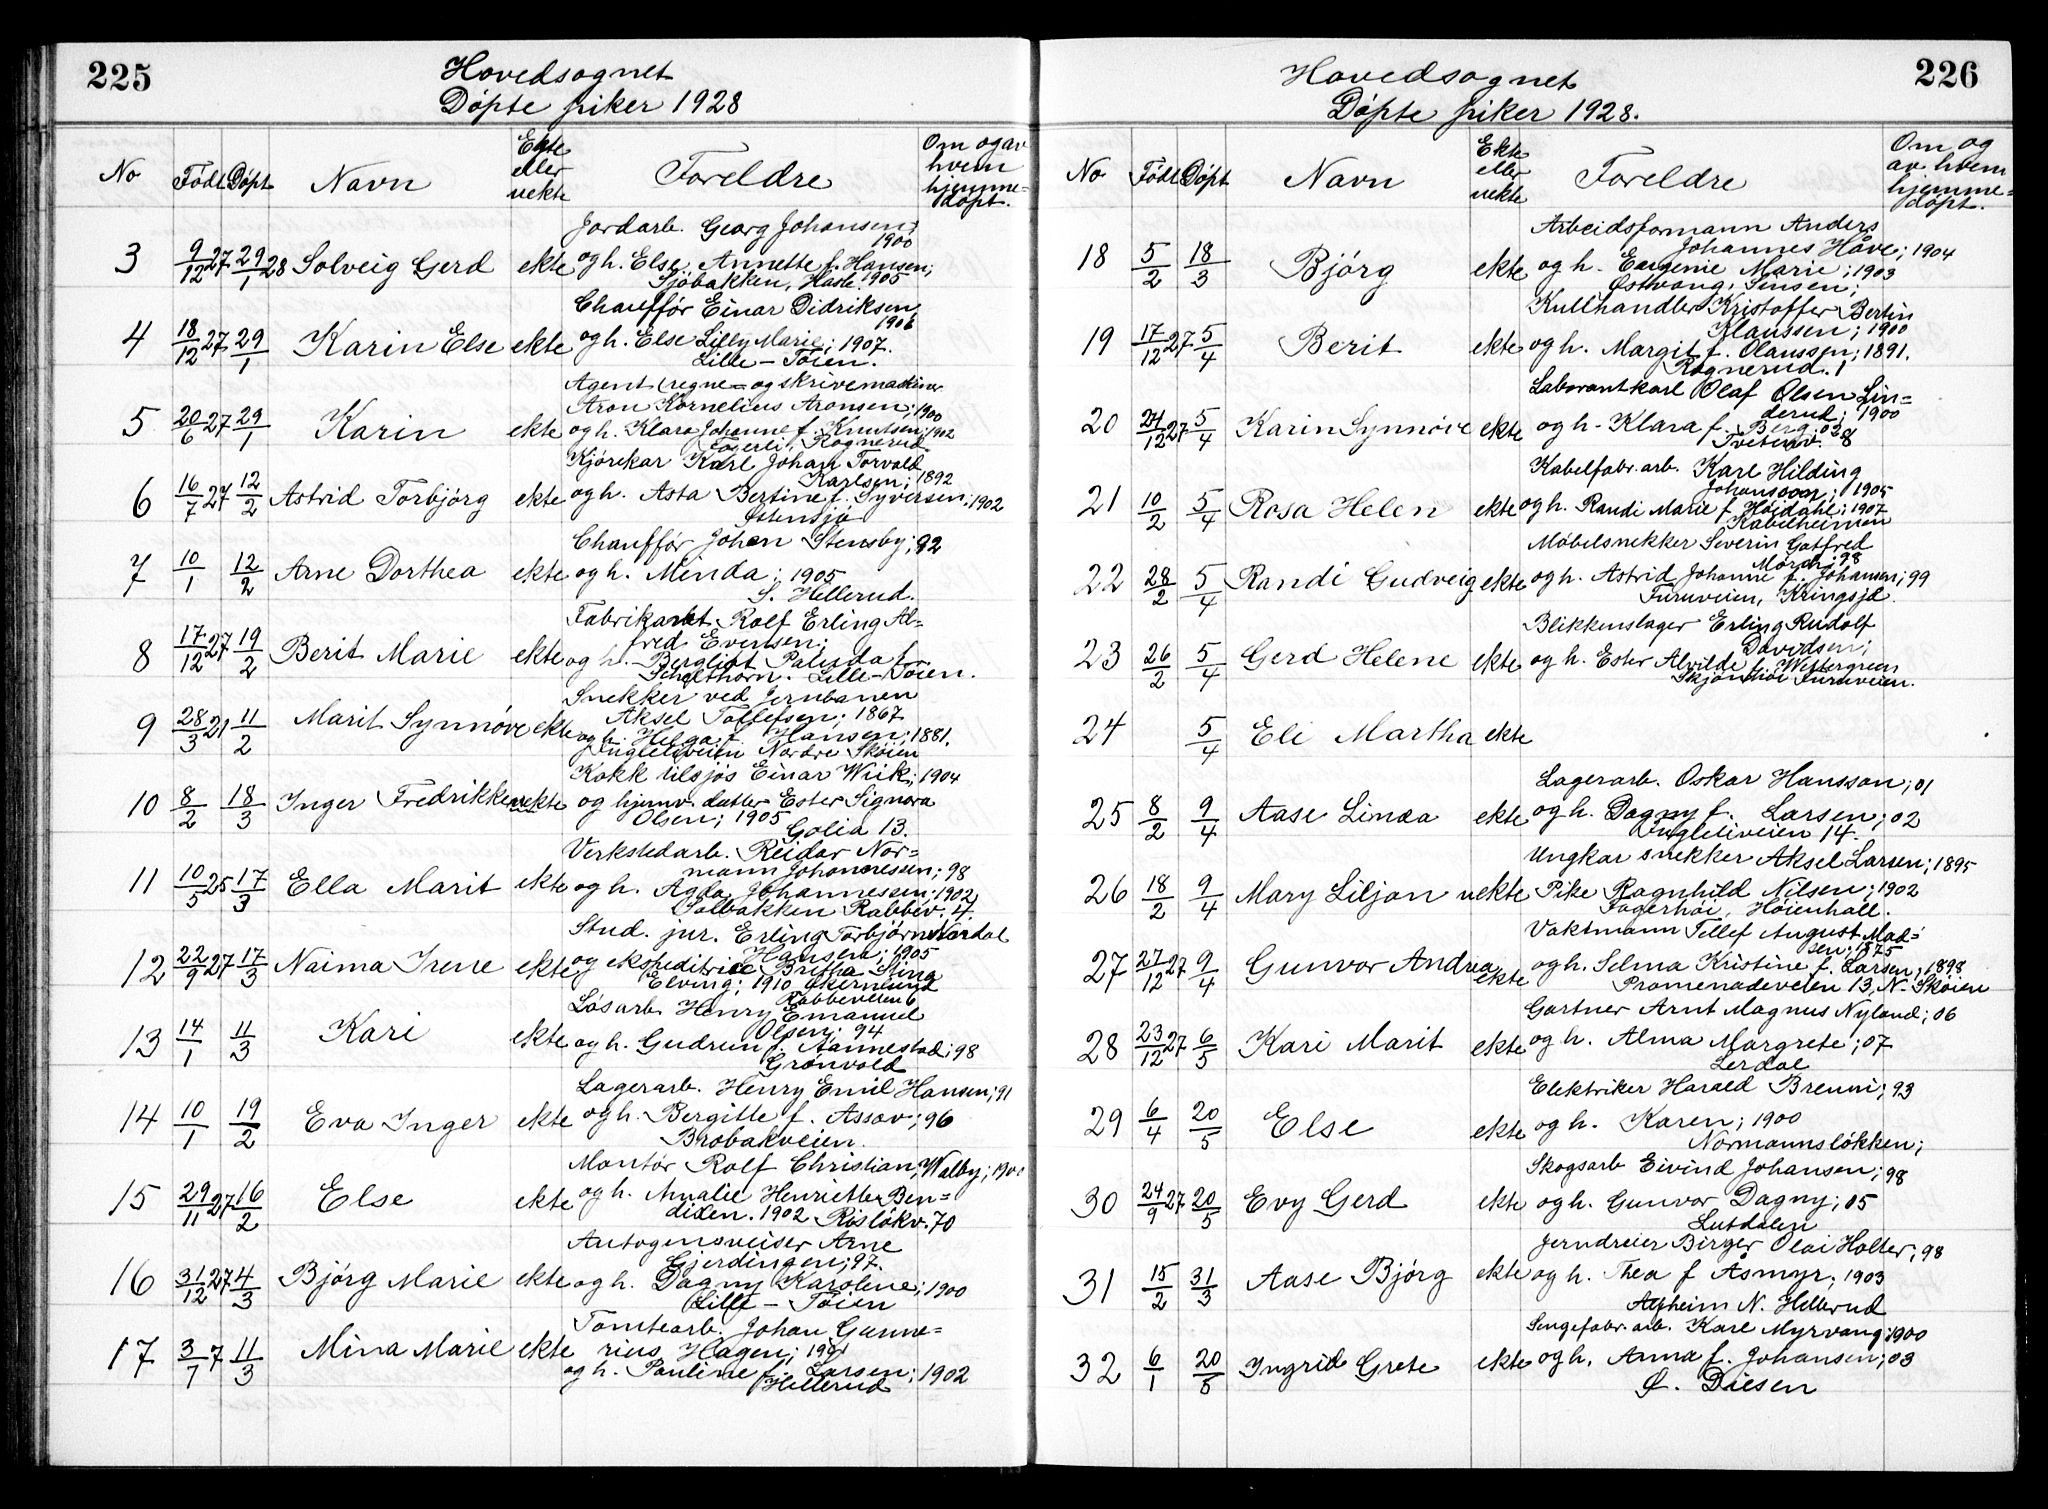 225
Hovedsognet
Døpte piker 1928
No Født Døpt Navn Ekte eller uekte Foreldre Om og av hvem hjemme=døpt.
3 9/12 27 29/1 28 Solveig Gerd ekte Jordarb. Georg Johansen; 1900
og h. Else Annette f. Hansen;
Hasle. 1905
4 18/12 27 29/1 Karin Else ekte Chauffør Einar Didriksen 1906
og h. Else Lilly Marie; 1907.
Lille-Tøien.
5 20/6 27 29/1 Karin ekte Agent (regne- og skrivemaskiner
Aron Kornelius Aronsen; 1900
og h. Klara Johanne f. Knutsen; 1902
Rognerud
6 16/7 27 12/2 Astrid Torbjørg ekte Kjørekar Karl Johan Torvald
Karlsen; 1892
og h. Asta Bertine f. Syversen; 1902
Østensjø
7 10/1 12/2 Arne Dorthea ekte Chauffør Johan Stensby; 92
og h. Menda; 1905
S. Hellerud.
8 17/12 27 19/2 Berit Marie ekte Rolf Erling Al=
fred Evensen;
og h. Bergliot f.
Lille-Tøien.
9 28/3 21 11/2 Marit Synnøve ekte Snekker ved Jernbanen
Aksel Tollefsen; 1867
og h. Helga f. Hansen; 1881.
Ugleliveien Nordre Skøien
10 8/2 18/3 Inger Fredrikke uekte Kokk tilsjøs Einar Wiik; 1904
og hjemv. datter Ester Signora
Olsen; 1905
Golia 13.
11 10/5 25 17/3 Ella Marit ekte Verkstedarb. Reidar Nor=
mann Johannesen; 98
og h. Agda Johannessen; 1902
Solbakken Rabbev. 4.
12 22/9 27 17/3 Naima Irene ekte Stud. jur. Erling Torbjørn Nordal
Hansen; 1905
og ekspeditrice Britha Stina
Elving; 1910
Rabbeveien 6
13 14/1 11/3 Kari ekte Løsarb. Henry Emanuel
Olsen; 94
og h. Gudrun f. Aannestad; 98
Grønvold
14 10/1 19/2 Eva Inger ekte Lagerarb. Henry Emil Hansen; 91
og h. Bergitte f. Assav; 96
Brobakveien.
15 29/11 27 16/2 Else ekte Montør Rolf Christian Walby;
og h. Amalie Henriette Ben=
dixen. 1902 Risløkv. 70
16 31/12 27 4/3 Bjørg Marie ekte Autogensveiser Arne
Gjerdingen; 97.
og h. Dagny Karoline; 1900
Lille-Tøien
17 3/7 7 11/3 Mina Marie ekte Tomtearb. Johan Gunne=
rius Hagen;
og h. Pauline f. Larsen; 1902
Hellerud
226
Hovedsognet
Døpte piker 1928.
No Født Døpt Navn Ekte eller uekte Foreldre Om og av hvem hjemme=døpt.
18 5/2 18/3 Bjørg ekte Arbeidsformann Anders
Johannes Håve; 1904
og h. Eugenie Marie; 1903
Østvang, Jensen;
19 17/12 27 5/4 Berit ekte Kullhandler Kristoffer Bertin
Klaussen; 1900
og h. Margit f. Olaussen; 1891.
Rognerud.
20 24/12 27 5/4 Karin Synnøve ekte Laborantkarl Olaf Olsen Lin=
derud; 1900
og h. Klara f. Berg; 02
Tvetenv. 8
21 10/2 5/4 Rosa Helen ekte Kabelfabr. arb. Karl Hilding
Johansson; 1905
og h. Randi Marie f. Høidahl; 1907
Kabelheimen
22 28/2 5/4 Randi Gudveig ekte Møbelsnekker Severin Gotfred
Mørch; 98
og h. Astrid Johanne f. Johansen; 99
Furuveien, Kringsjå.
23 26/2 5/4 Gerd Helene ekte Blikkenslager Erling Rudolf
Davidsen;
og h. Ester Alvilde f. Wettergreen
Skjønhøi Furuveien.
24 5/4 Eli Martha ekte
25 8/2 9/4 Aase Linda ekte Lagerarb. Oskar Hansson; 01
og h. Dagny f. Larsen; 02
Ugleliveien 14.
26 18/2 9/4 Mary Liljan uekte Ungkar snekker Aksel Larsen; 1895
Pike Ragnhild Nilsen; 1902
Fagerhøi, Høienhall.
27 27/12 27 9/4 Gunvor Andrea ekte Vaktmann Tellef August Mad=
sen; 1875
og h. Selma Kristine f. Larsen; 1898
Promenadeveien 13, N. Skøien
28 23/12 27 6/5 Kari Marit ekte Gartner Arnt Magnus Nyland; 06
og h. Alma Margrete; 07
Lerdal
29 6/4 20/5 Else ekte Elektriker Harald Brenni; 93
og h. Karen; 1900
Normannsløkken;
30 24/9 27 20/5 Evy Gerd ekte Skogsarb Eivind Johansen; 98
og h. Gunvor Dagny; 05
Lutdalen
31 15/2 31/3 Aase Bjørg ekte Jerndreier Birger Olai Holter; 98
og h. Thea f Åsmyr; 1903
Alfheim N. Hellerud
32 6/1 20/5 Ingrid Grete ekte Sengefabr. arb. Karl Myrvang; 1900
og h. Anna f. Johansen; 03
Ø. Diesen